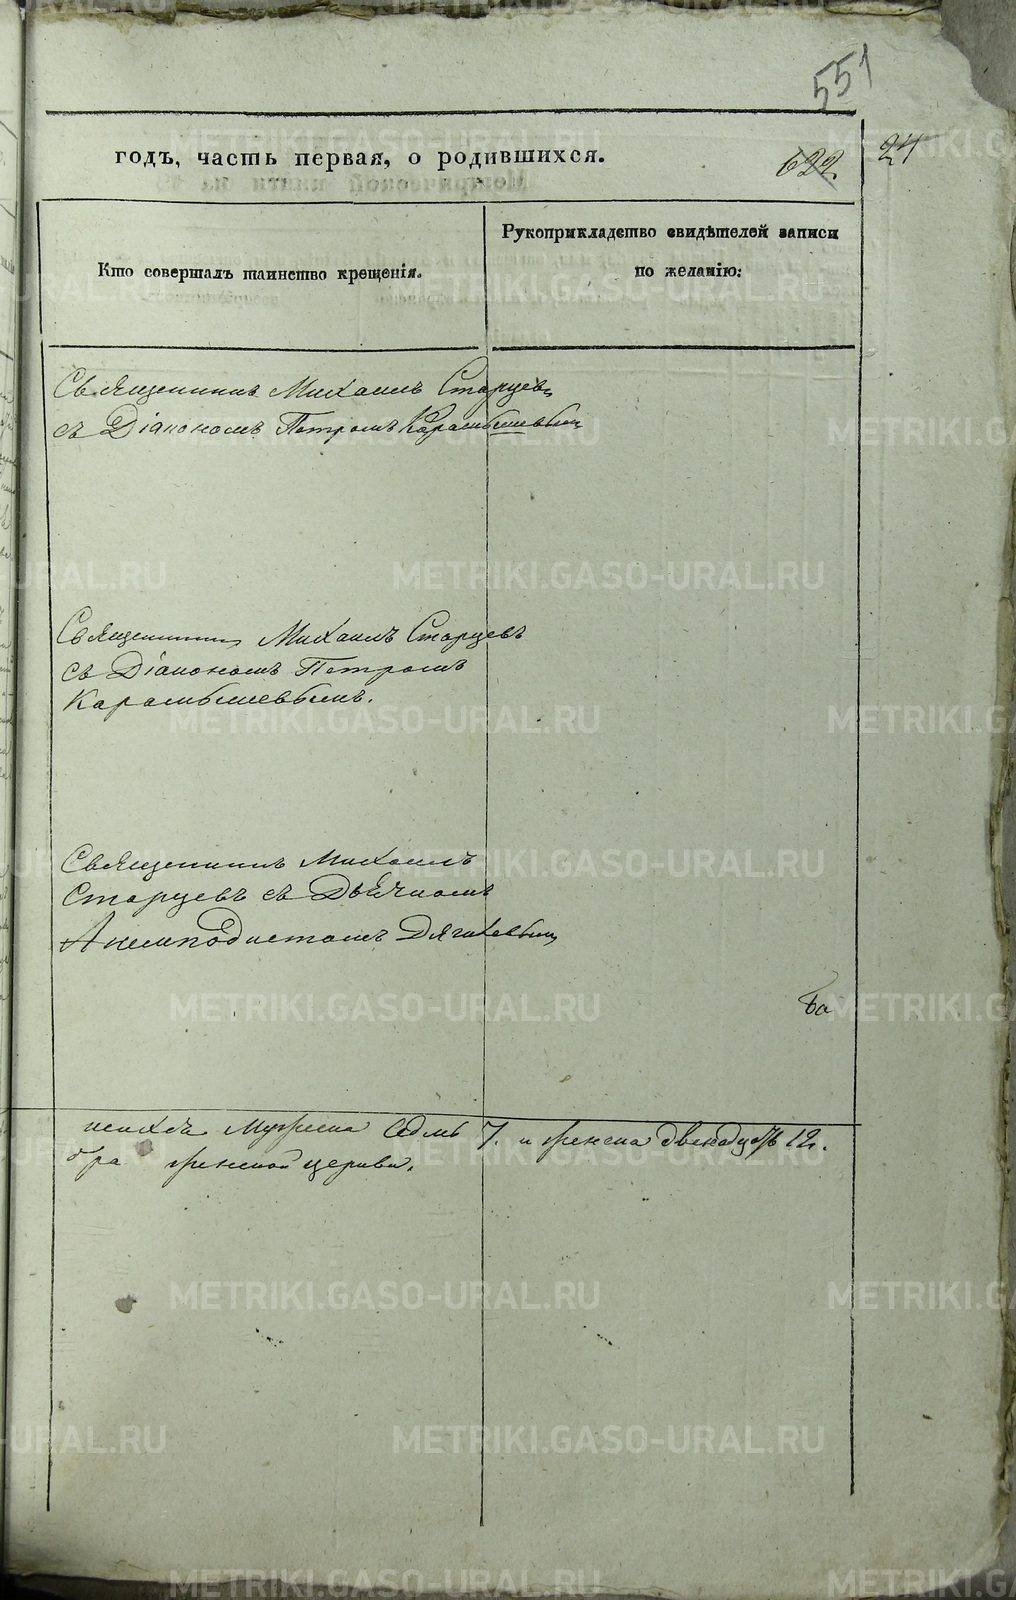 551
годъ, часть первая, о родившихся.
622
24
Кто совершалъ таинство крещенія.
Рукоприкладство свидѣтелей записи
по желанію:
Священникъ Михаилъ Старцевъ
съ Діакономъ Петромъ Карамышевымъ
Священникъ Михаилъ Старцевъ
съ Діакономъ Петромъ
Карамышевымъ.
Священникъ Михаилъ
Старцевъ съ Дьячкомъ
Анемподистомъ Дягилевымъ
Мужеска Седмь 7. и женска двенадцать 12.
церкви.
METRIKI.GASO-URAL.RU